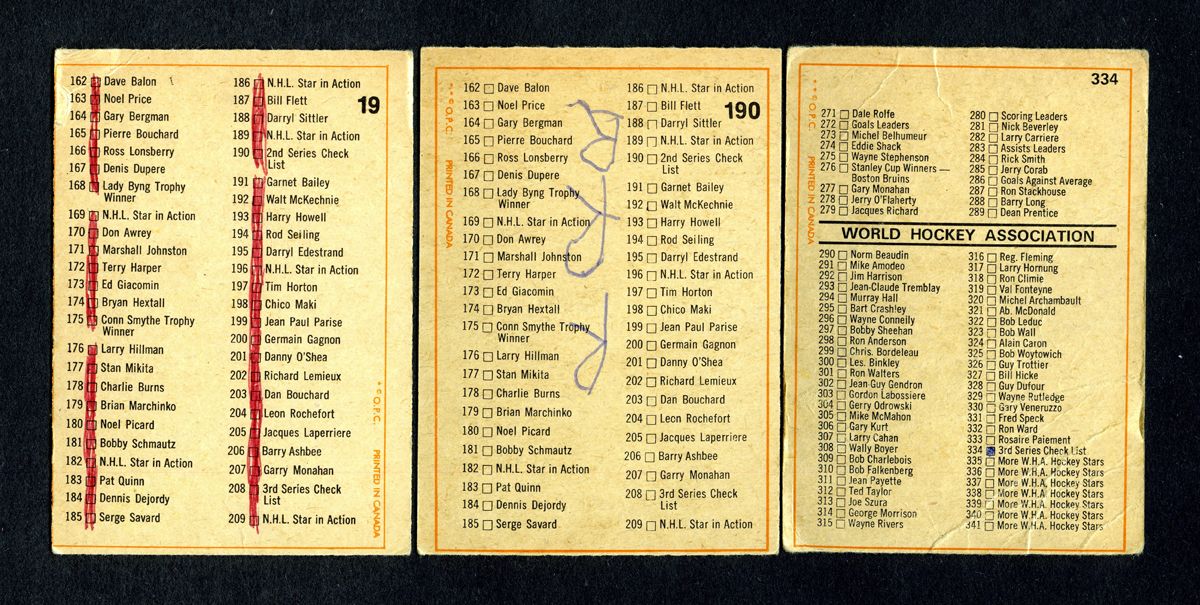 19
162 Dave Balon
163 Noel Price
164 Gary Bergman
165 Pierre Bouchard
166 Ross Lonsberry
167 Denis Dupere
168 Lady Byng Trophy
Winner
169 N.H.L. Star in Action
170 Don Awrey
171 Marshall Johnston
172 Terry Harper
173 Ed Giacomin
174 Bryan Hextall
175 Conn Smythe Trophy
Winner
176 Larry Hillman
177 Stan Mikita
178 Charlie Burns
179 Brian Marchinko
180 Noel Picard
181 Bobby Schmautz
182 N.H.L. Star in Action
183 Pat Quinn
184 Dennis Dejordy
185 Serge Savard
186 N.H.L. Star in Action
187 Bill Flett
188 Darryl Sittler
189 N.H.L. Star in Action
190 2nd Series Check
List
191 Garnet Bailey
192 Walt McKechnie
193 Harry Howell
194 Rod Seiling
195 Darryl Edestrand
196 N.H.L. Star in Action
197 Tim Horton
198 Chico Maki
199 Jean Paul Parise
200 Germain Gagnon
201 Danny O'Shea
202 Richard Lemieux
203 Dan Bouchard
204 Leon Rochefort
205 Jacques Laperriere
206 Barry Ashbee
207 Garry Monahan
208 3rd Series Check
List
209 N.H.L. Star in Action
O.P.C. PRINTED IN CANADA
190
O.P.C. PRINTED IN CANADA
162 Dave Balon
163 Noel Price
164 Gary Bergman
165 Pierre Bouchard
166 Ross Lonsberry
167 Denis Dupere
168 Lady Byng Trophy
Winner
169 N.H.L. Star in Action
170 Don Awrey
171 Marshall Johnston
172 Terry Harper
173 Ed Giacomin
174 Bryan Hextall
175 Conn Smythe Trophy
Winner
176 Larry Hillman
177 Stan Mikita
178 Charlie Burns
179 Brian Marchinko
180 Noel Picard
181 Bobby Schmautz
182 N.H.L. Star in Action
183 Pat Quinn
184 Dennis Dejordy
185 Serge Savard
186 N.H.L. Star in Action
187 Bill Flett
188 Darryl Sittler
189 N.H.L. Star in Action
190 2nd Series Check
List
191 Garnet Bailey
192 Walt McKechnie
193 Harry Howell
194 Rod Seiling
195 Darryl Edestrand
196 N.H.L. Star in Action
197 Tim Horton
198 Chico Maki
199 Jean Paul Parise
200 Germain Gagnon
201 Danny O'Shea
202 Richard Lemieux
203 Dan Bouchard
204 Leon Rochefort
205 Jacques Laperriere
206 Barry Ashbee
207 Garry Monahan
208 3rd Series Check
List
209 N.H.L. Star in Action
334
O.P.C. PRINTED IN CANADA
271 Dale Rolfe
272 Goals Leaders
273 Michel Belhumeur
274 Eddie Shack
275 Wayne Stephenson
276 Stanley Cup Winners —
Boston Bruins
277 Gary Monahan
278 Jerry O'Flaherty
279 Jacques Richard
280 Scoring Leaders
281 Nick Beverley
282 Larry Carriere
283 Assists Leaders
284 Rick Smith
285 Jerry Corab
286 Goals Against Average
287 Ron Stackhouse
288 Barry Long
289 Dean Prentice
WORLD HOCKEY ASSOCIATION
290 Norm Beaudin
291 Mike Amodeo
292 Jim Harrison
293 Jean-Claude Tremblay
294 Murray Hall
295 Bart Crashley
296 Wayne Connelly
297 Bobby Sheehan
298 Ron Anderson
299 Chris. Bordeleau
300 Les. Binkley
301 Ron Walters
302 Jean-Guy Gendron
303 Gordon Labossiere
304 Gerry Odrowski
305 Mike McMahon
306 Gary Kurt
307 Larry Cahan
308 Wally Boyer
309 Bob Charlebois
310 Bob Falkenberg
311 Jean Payette
312 Ted Taylor
313 Joe Szura
314 George Morrison
315 Wayne Rivers
316 Reg. Fleming
317 Larry Hornung
318 Ron Climie
319 Val Fonteyne
320 Michel Archambault
321 Ab. McDonald
322 Bob Leduc
323 Bob Wall
324 Alain Caron
325 Bob Woytowich
326 Guy Trottier
327 Bill Hicke
328 Guy Dufour
329 Wayne Rutledge
330 Gary Veneruzzo
331 Fred Speck
332 Ron Ward
333 Rosaire Paiement
334 3rd Series Check List
335 More W.H.A. Hockey Stars
336 More W.H.A. Hockey Stars
337 More W.H.A. Hockey Stars
338 More W.H.A. Hockey Stars
339 More W.H.A. Hockey Stars
340 More W.H.A. Hockey Stars
341 More W.H.A. Hockey Stars